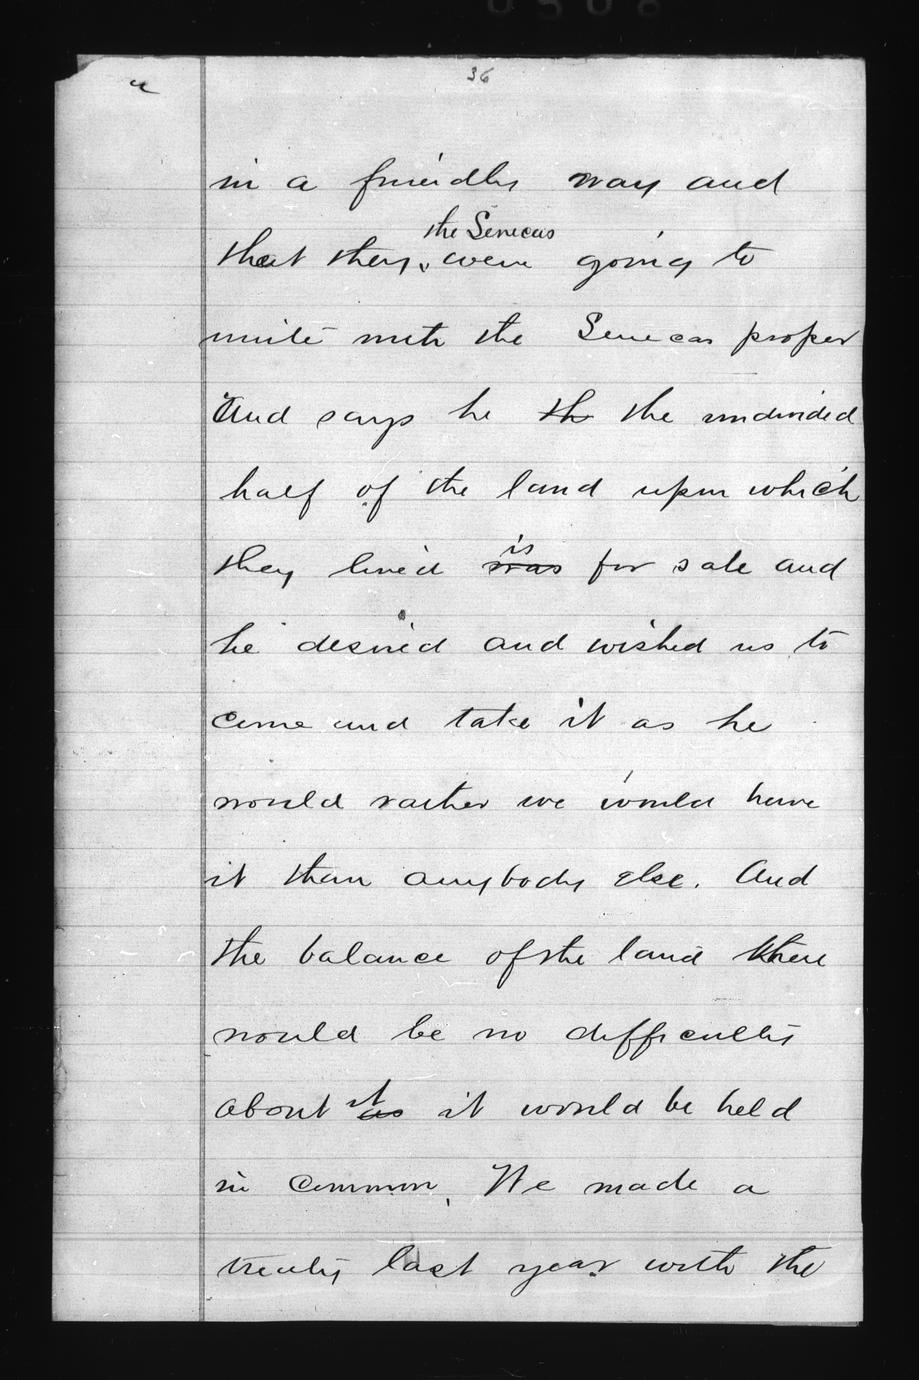 36
in a friendly way and
the Senecas
that they, were going to
unite with the Senecas proper
And says he th the undivided
half of the land upon which
is
they lived was for sale and
he desired and wished us to
come and take it as he
would rather we would have
it than anybody else. And
the balance of the land there
would be no difficulty
it
about as it would be held
in common. We made a
treaty last year with the